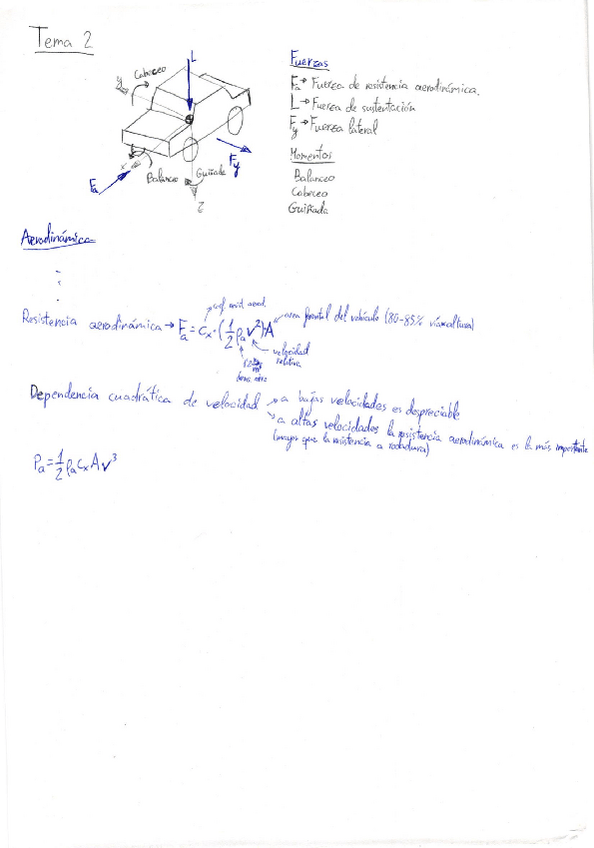 Tema 2
L
y
Cabeceo
x
Balanceo
Guiñada
z
Fa
Fy
Fuerzas
Fa → Fuerza de resistencia aerodinámica.
L → Fuerza de sustentación
Fy → Fuerza lateral
Momentos
Balanceo
Cabeceo
Guiñada
Aerodinámica
coef. resist. aerod.
Resistencia aerodinámica → Fa = cx · (1/2 ρa v²) A
area frontal del vehículo (80-85% vía x altura)
velocidad relativa
dens. aire
Dependencia cuadrática de velocidad → a bajas velocidades es despreciable
→ a altas velocidades la resistencia aerodinámica es la más importante
(mayor que la resistencia a rodadura)
Pa = 1/2 ρa cx A v³